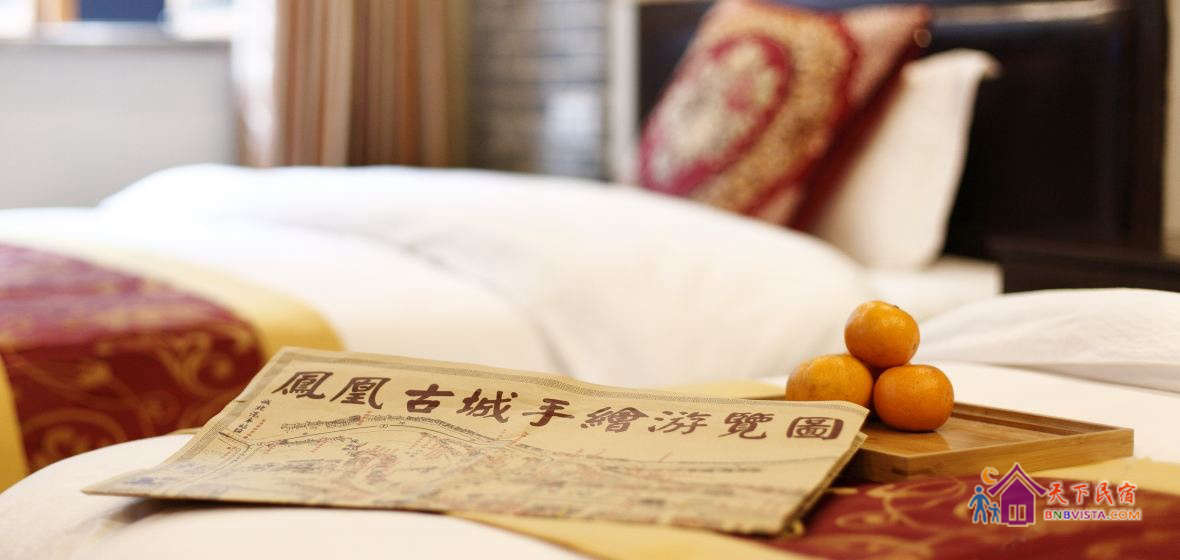 鳳凰古城手繪游覽圖
天下民宿
BNBVISTA.COM